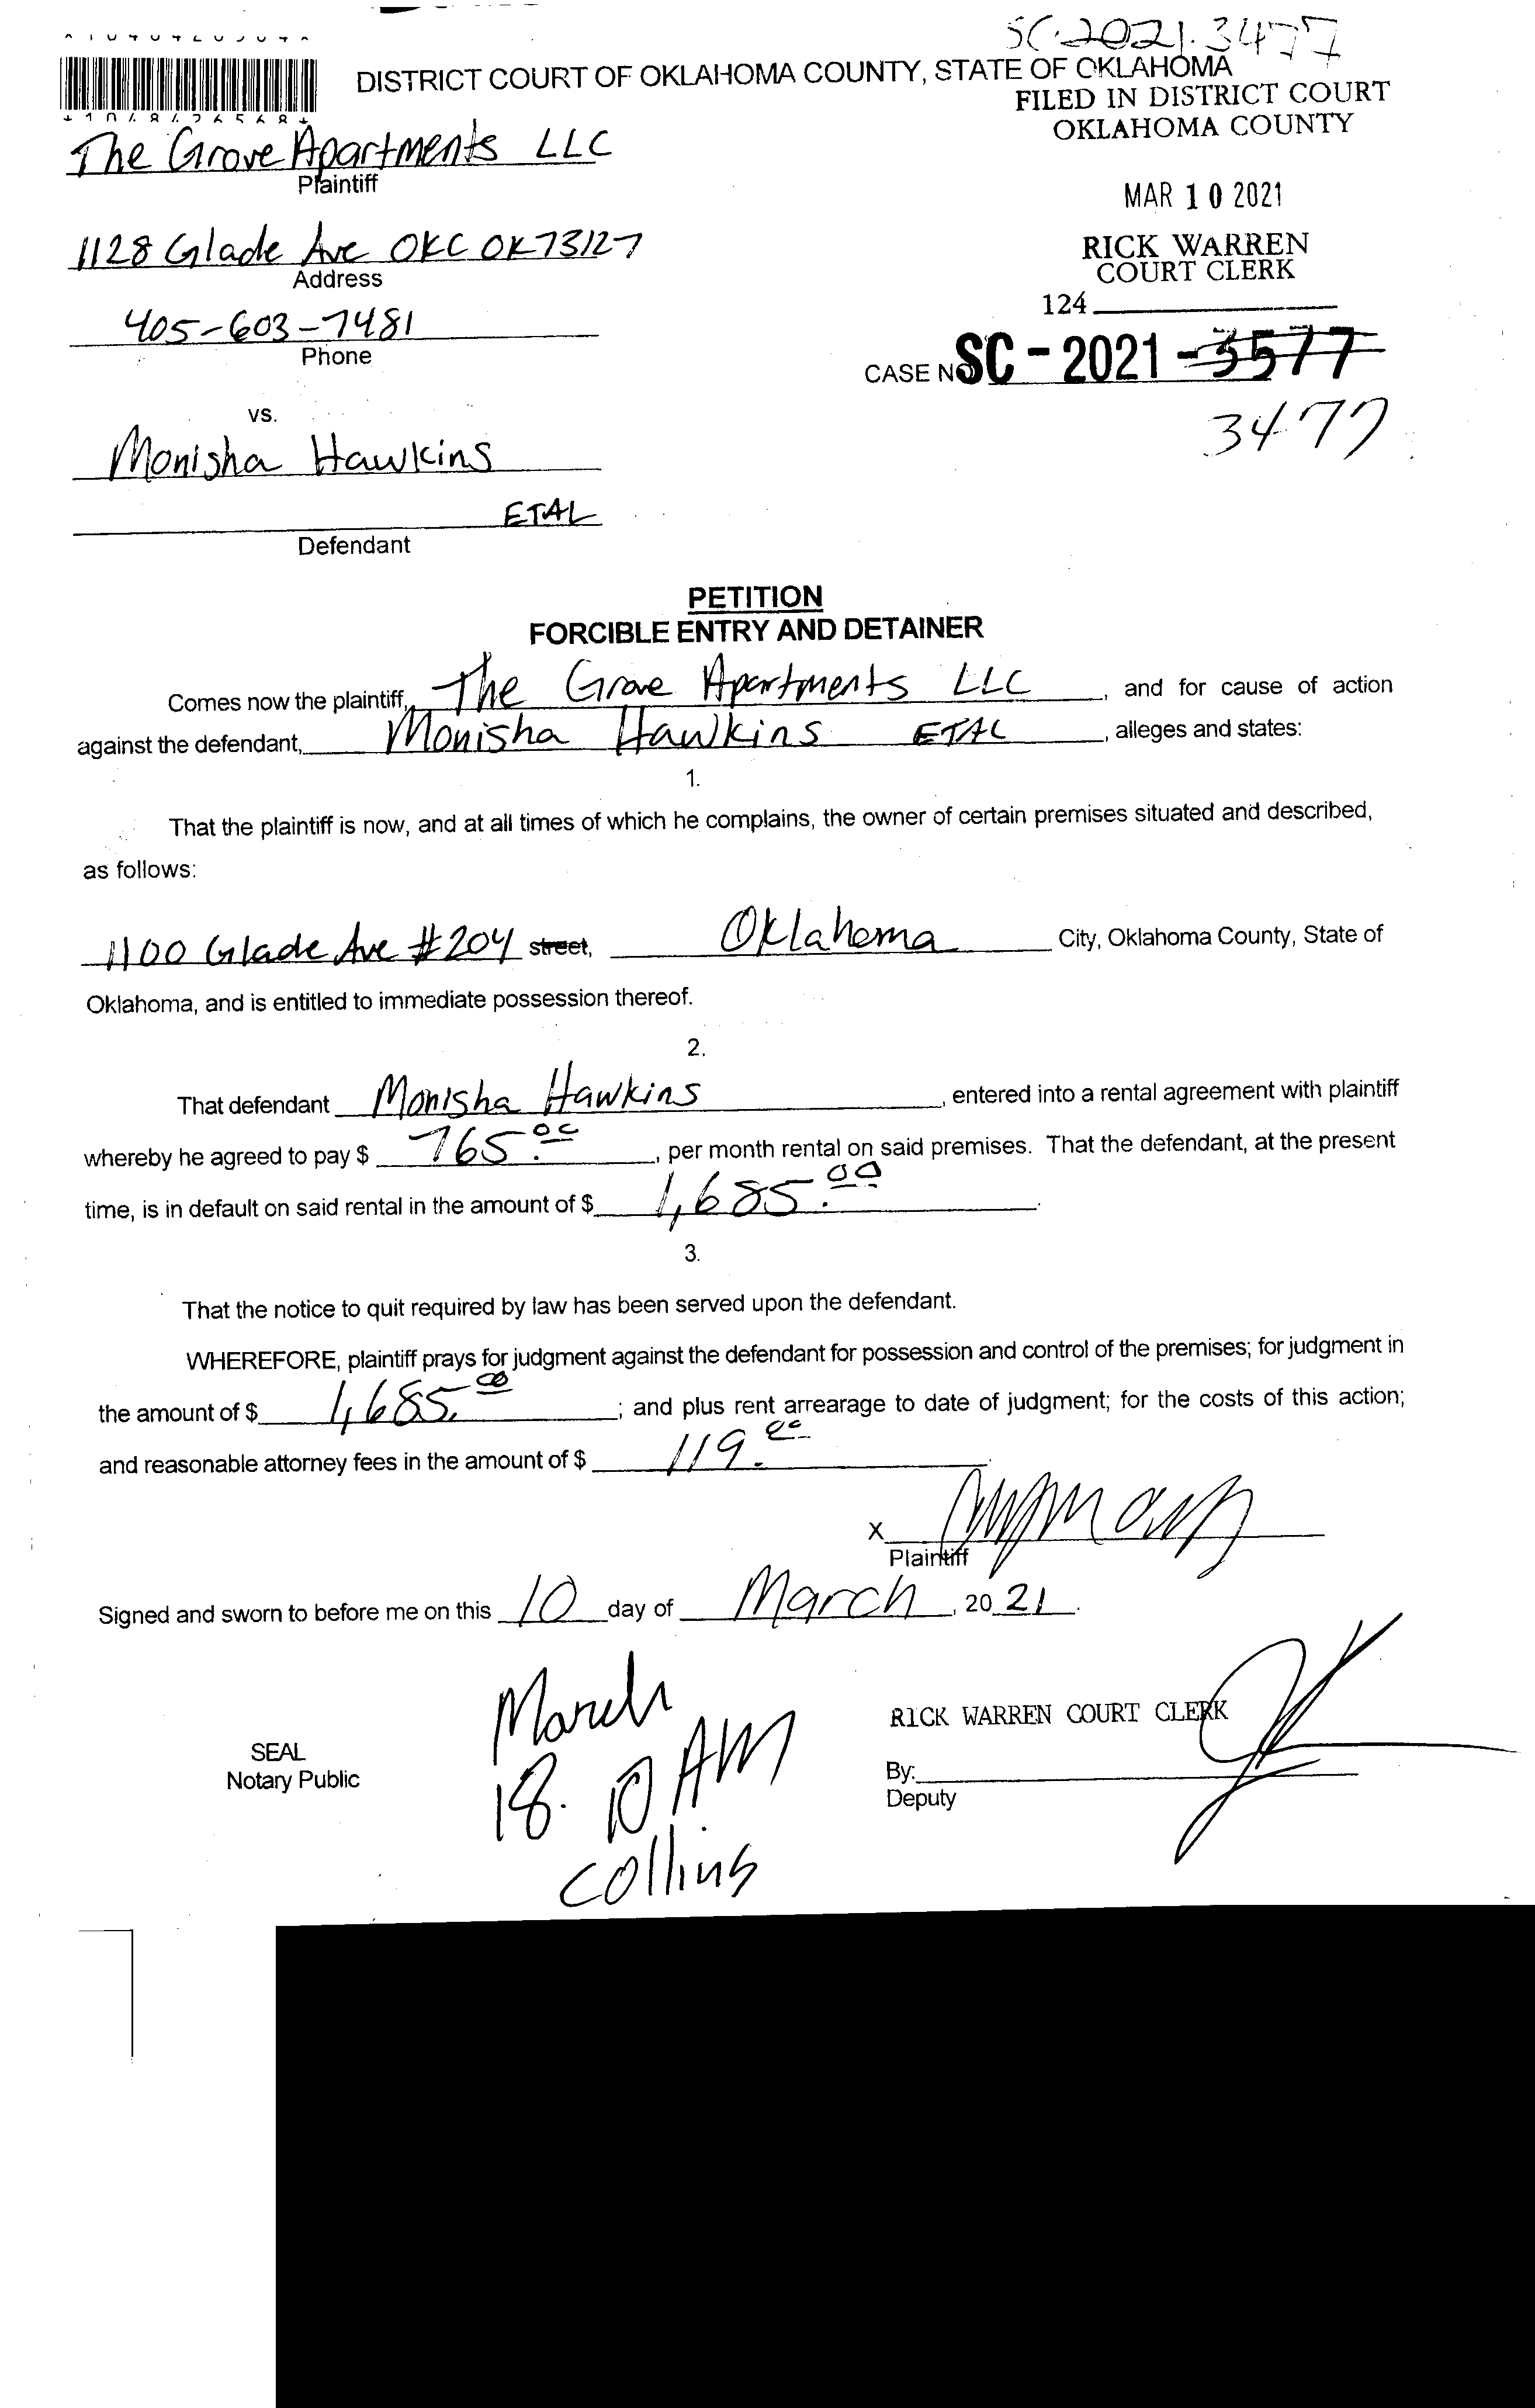 SC-2021-3477
DISTRICT COURT OF OKLAHOMA COUNTY, STATE OF OKLAHOMA
FILED IN DISTRICT COURT
OKLAHOMA COUNTY
The Grove Apartments LLC
Plaintiff
MAR 10 2021
1128 Glade Ave OKC OK 73127
Address
RICK WARREN
COURT CLERK
124
405-603-7481
Phone
CASE NO SC-2021-3577
3477
vs.
Monisha Hawkins
ETAL
Defendant
PETITION
FORCIBLE ENTRY AND DETAINER
Comes now the plaintiff, The Grove Apartments LLC, and for cause of action
against the defendant, Monisha Hawkins ETAL, alleges and states:
1.
That the plaintiff is now, and at all times of which he complains, the owner of certain premises situated and described,
as follows:
1100 Glade Ave #204 street, Oklahoma City, Oklahoma County, State of
Oklahoma, and is entitled to immediate possession thereof.
2.
That defendant Monisha Hawkins, entered into a rental agreement with plaintiff
whereby he agreed to pay $ 765.00, per month rental on said premises. That the defendant, at the present
time, is in default on said rental in the amount of $ 1,685.00.
3.
That the notice to quit required by law has been served upon the defendant.
WHEREFORE, plaintiff prays for judgment against the defendant for possession and control of the premises; for judgment in
the amount of $ 1,685.00; and plus rent arrearage to date of judgment; for the costs of this action;
and reasonable attorney fees in the amount of $ 119.00.
X
Plaintiff
Signed and sworn to before me on this 10 day of March, 2021.
March
18. 10 AM
Collins
RICK WARREN COURT CLERK
SEAL
Notary Public
By:
Deputy